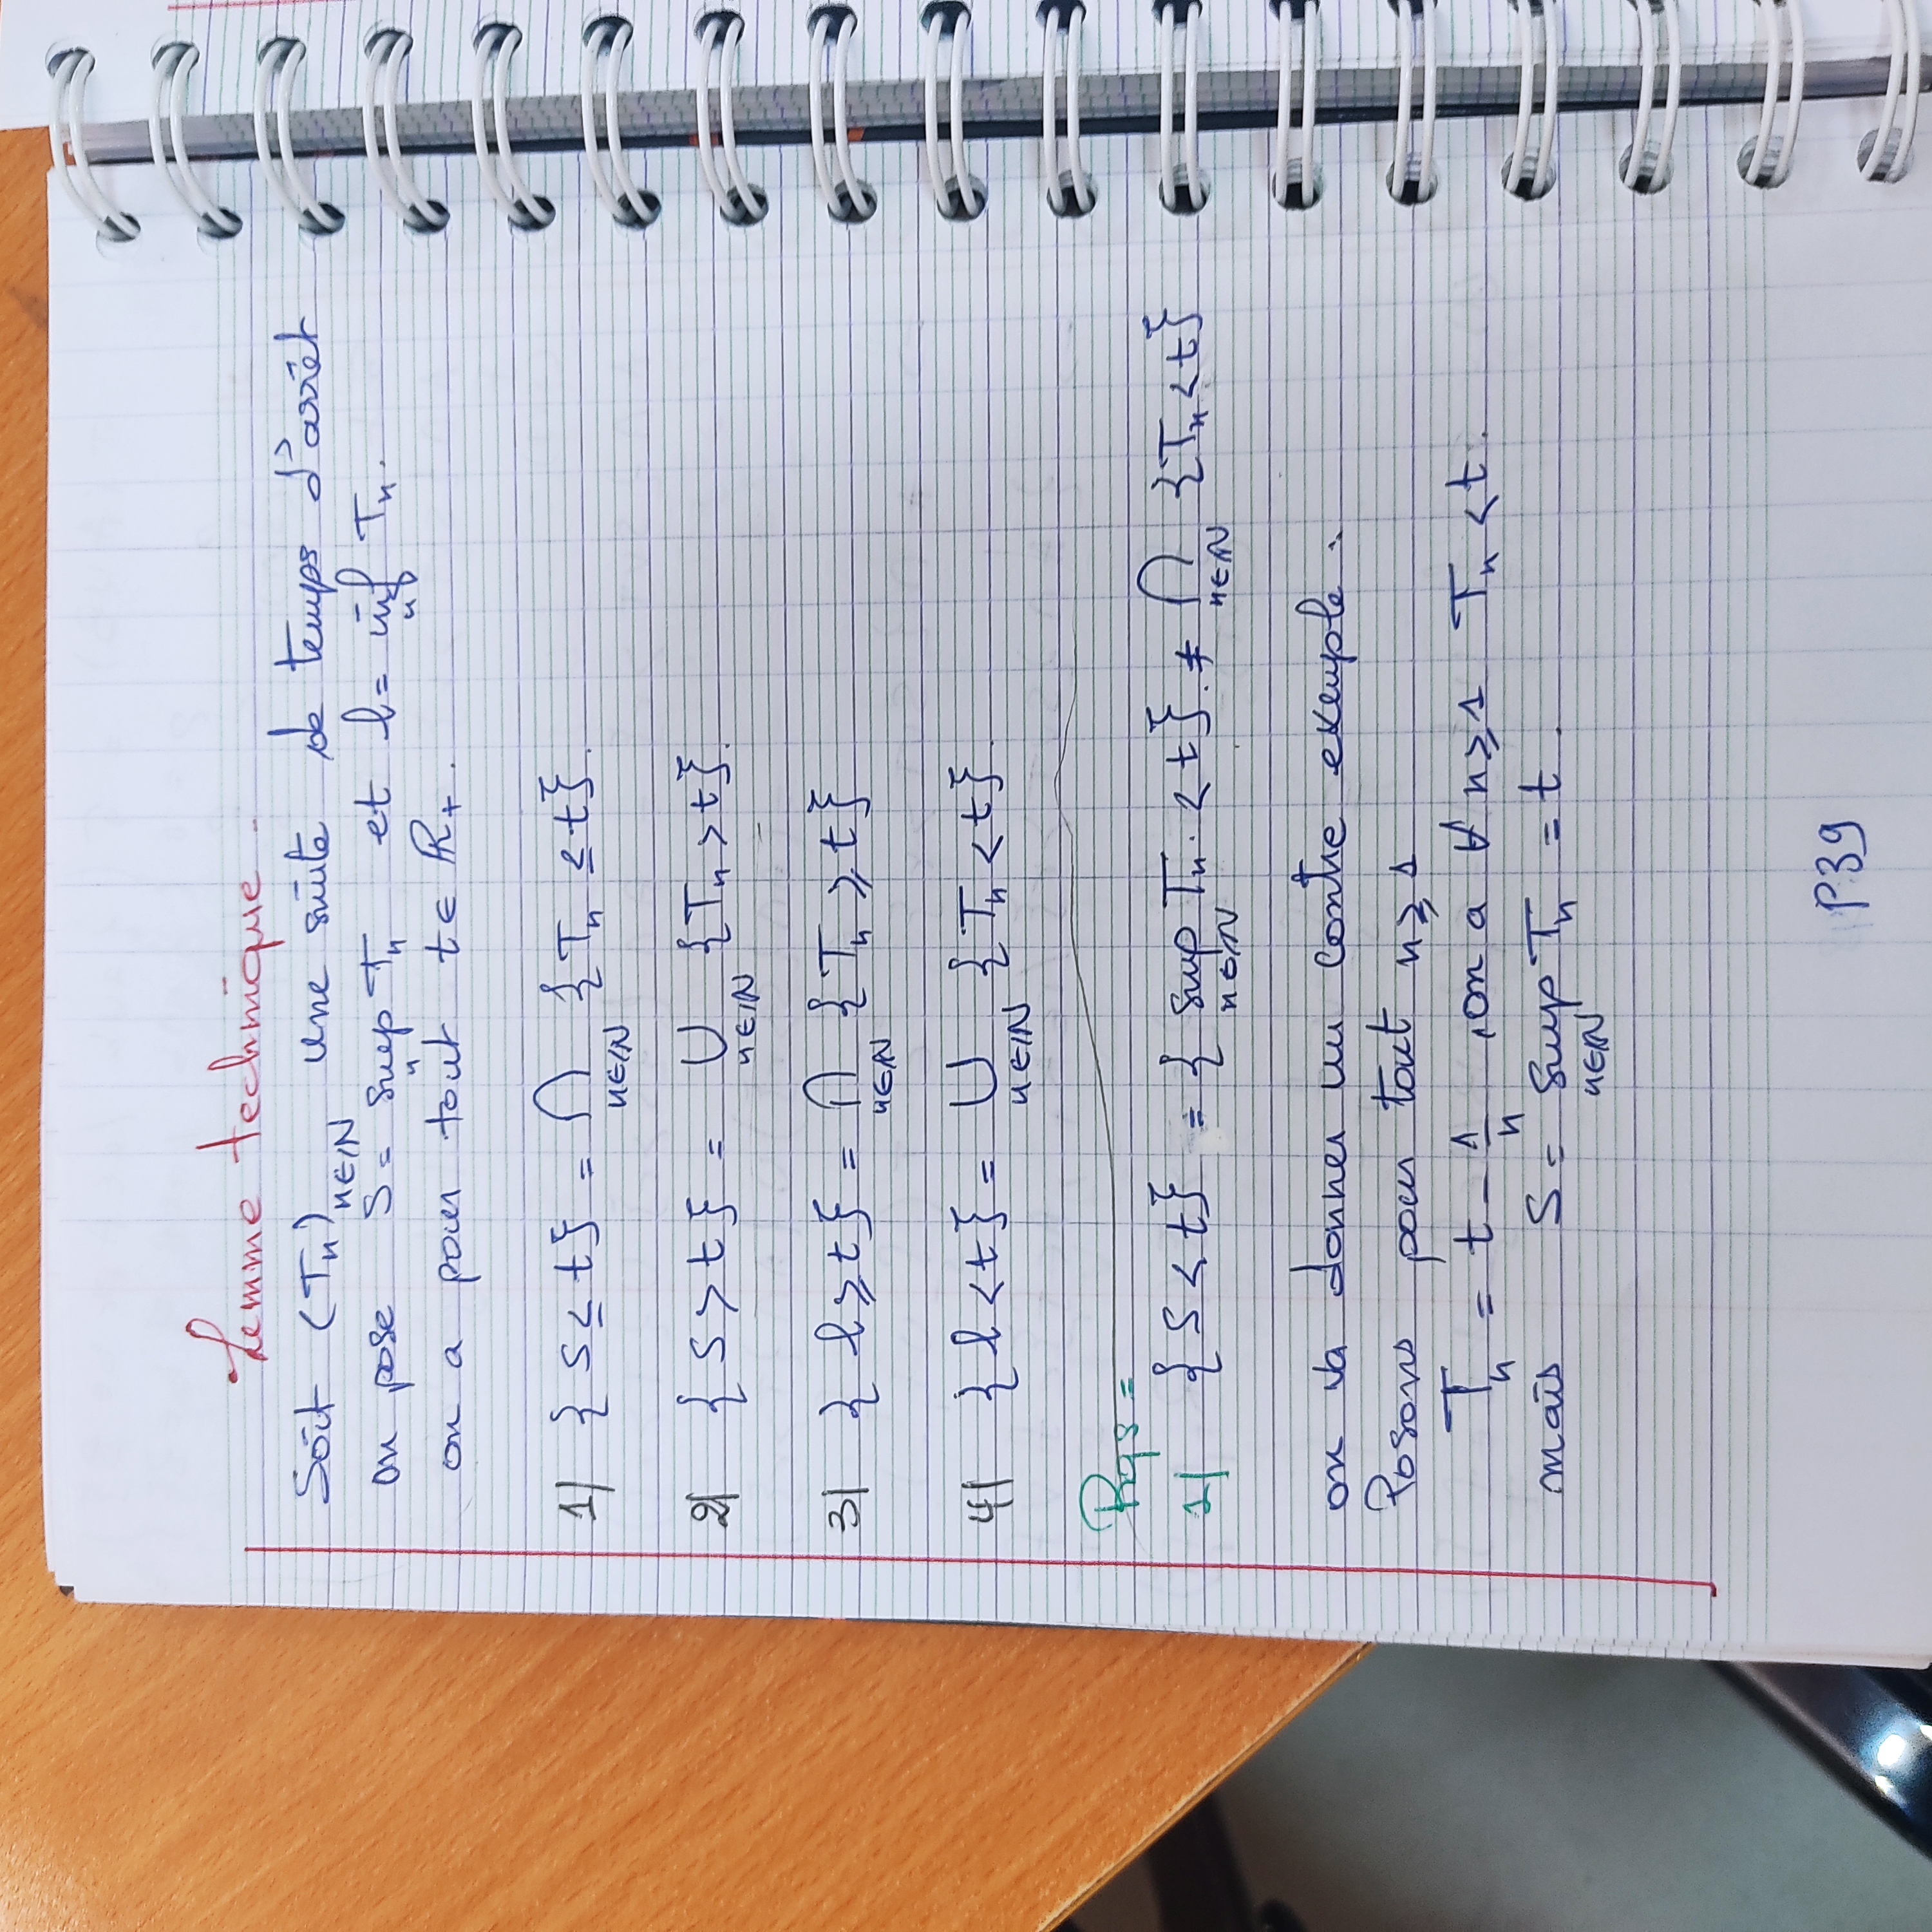 Lemme technique.
Soit (Tn)n∈ℕ une suite de temps d'arrêt
on pose S = sup Tn et l = inf Tn.
n n
on a pour tout t ∈ ℝ+.
1) { S ≤ t } = ⋂ { Tn ≤ t }.
n∈ℕ
2) { S > t } = ⋃ { Tn > t }.
n∈ℕ
3) { l ≥ t } = ⋂ { Tn ≥ t }
n∈ℕ
4) { l < t } = ⋃ { Tn < t }.
n∈ℕ
Rqs =
1) { S < t } = { sup Tn. < t }. ≠ ⋂ { Tn < t }
n∈ℕ n∈ℕ
on va donner un contre exemple.
Posons pour tout n ≥ 1
Tn = t - 1/n , on a ∀ n ≥ 1 Tn < t.
mais S = sup Tn = t.
n∈ℕ
P39